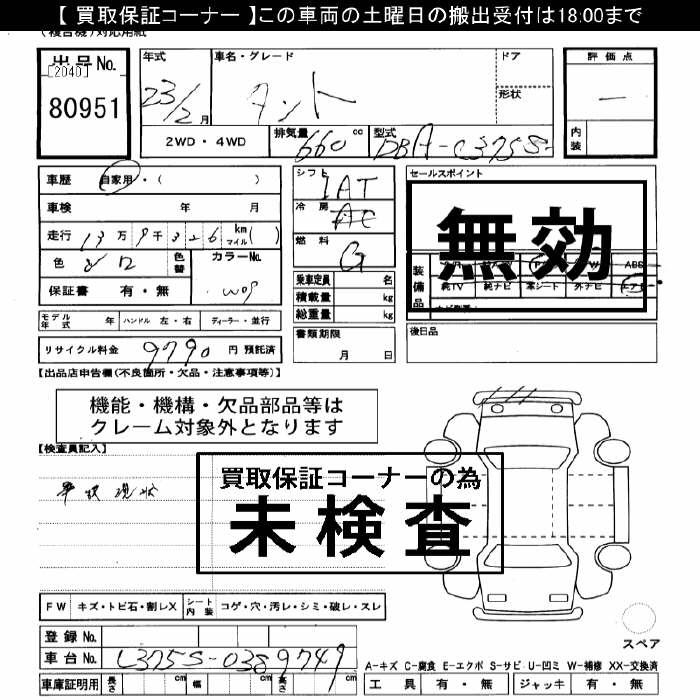 【 買取保証コーナー 】この車両の土曜日の搬出受付は18:00まで
(複合機)対応用紙
出品No.
[2040]
80951
年式
23/2月
車名・グレード
タント
ドア
形状
評価点
内装
2WD・4WD
排気量 660 cc
型式 DBA-L375S
車歴 自家用・( )
車検 年 月
走行 13万9千326 km マイル( )
色 シロ
色替
カラーNo. W09
保証書 有・無
シフト IAT
冷房 AC
燃料 G
乗車定員 名
積載量 kg
総重量 kg
セールスポイント
無効
装備品
ABS
純TV 純ナビ 革シート 外ナビ エアB
モデル年式 年 ハンドル 左・右 ディーラー・並行
リサイクル料金 9790 円 預託済
書類期限
月 日
後日品
【出品店申告欄(不良箇所・欠品・注意事項等)】
機能・機構・欠品部品等は
クレーム対象外となります
【検査員記入】
買取保証コーナーの為
未検査
車取現状
FW キズ・トビ石・割レX シート内装 コゲ・穴・汚レ・シミ・破レ・スレ
登録No.
車台No. L375S-0389749
車庫証明用 長さ cm 幅 cm 高さ cm
スペア
A-キズ C-腐食 E-エクボ S-サビ U-凹ミ W-補修 XX-交換済
工具 有・無 ジャッキ 有・無